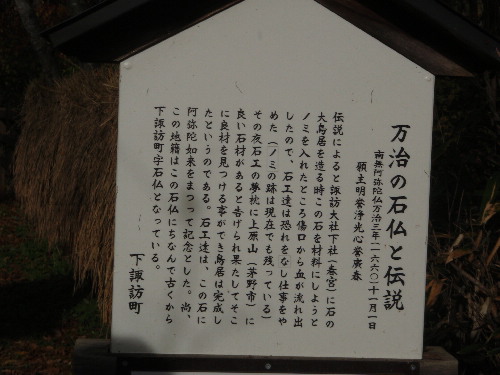 万治の石仏と伝説
南無阿弥陀仏万治三年（一六六〇）十一月一日
願主明誉浄光心誉廣春
伝説によると諏訪大社下社（春宮）に石の
大鳥居を造る時この石を材料にしようと
ノミを入れたところ傷口から血が流れ出
したので、石工達は恐れをなし仕事をや
めた（ノミの跡は現在でも残っている）
その夜石工の夢枕に上原山（茅野市）に
良い石材があると告げられ果たしてそこ
に良材を見つける事ができ鳥居は完成し
たというのである。石工達は、この石に
阿弥陀如来をまつって記念とした。尚、
この地籍はこの石仏にちなんで古くから
下諏訪町字石仏となっている。
下諏訪町